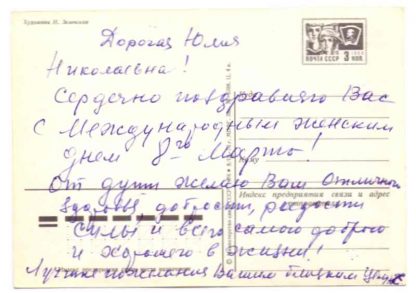 Художник И. Зеленская
Дорогая Юлия
Николаевна!
Сердечно поздравляю Вас
с Международным женским
днем 8го Марта!
От души желаю Вам отличного
здоровья, радости
силы и всего самого доброго
и хорошего в жизни!
Лучшие пожелания Вашим близким
ПОЧТА СССР 3 КОП
Куда
Кому
Индекс предприятия связи и адрес